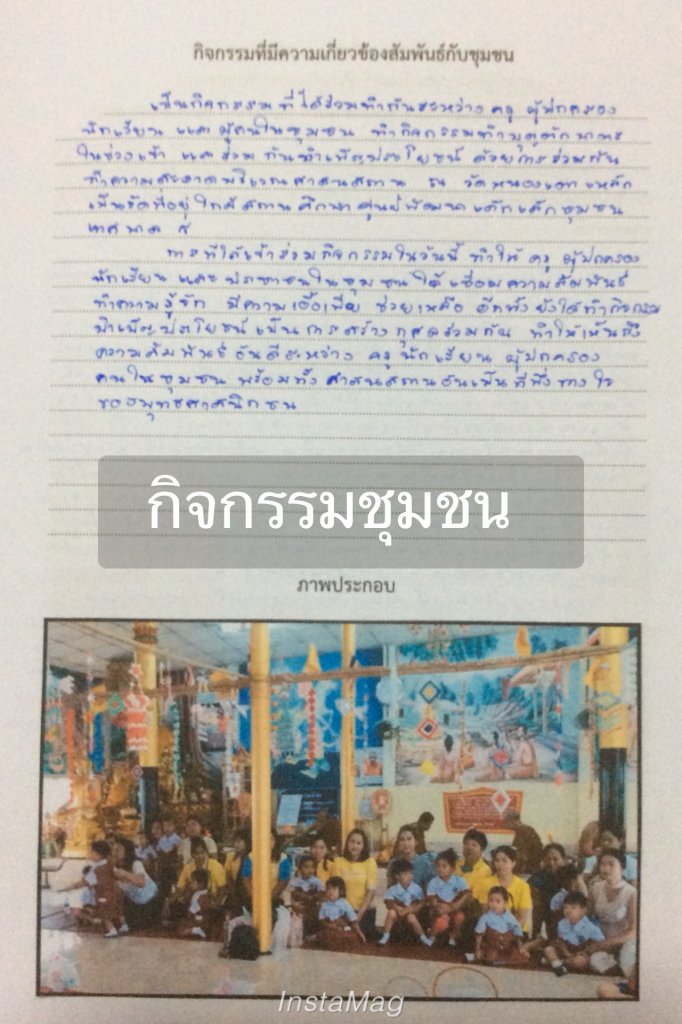 กิจกรรมที่มีความเกี่ยวข้องสัมพันธ์กับชุมชน
เป็นกิจกรรมที่ได้ร่วมทำกันระหว่าง ครู ผู้ปกครอง
นักเรียน และ ผู้คนในชุมชน ทำกิจกรรมทำบุญตักบาตร
ในช่วงเช้า และ ร่วมกันบำเพ็ญประโยชน์ ด้วยการร่วมกัน
ทำความสะอาดบริเวณศาสนสถาน ณ วัดหนองเตาเหล็ก
เป็นวัดที่อยู่ใกล้สถานศึกษา ศูนย์พัฒนาเด็กเล็กชุมชน
เทศบาล ๕
การที่ได้เข้าร่วมกิจกรรมในวันนี้ ทำให้ ครู ผู้ปกครอง
นักเรียน และ ประชาชนในชุมชนได้เชื่อมความสัมพันธ์
ทำความรู้จัก มีความเอื้อเฟื้อ ช่วยเหลือ อีกทั้งยังได้ทำกิจกรรม
บำเพ็ญประโยชน์ เป็นการสร้างกุศลร่วมกัน ทำให้เห็นถึง
ความสัมพันธ์อันดีระหว่าง ครู นักเรียน ผู้ปกครอง
คนในชุมชน พร้อมทั้งศาสนสถานอันเป็นที่พึ่งทางใจ
ของพุทธศาสนิกชน
กิจกรรมชุมชน
ภาพประกอบ
InstaMag